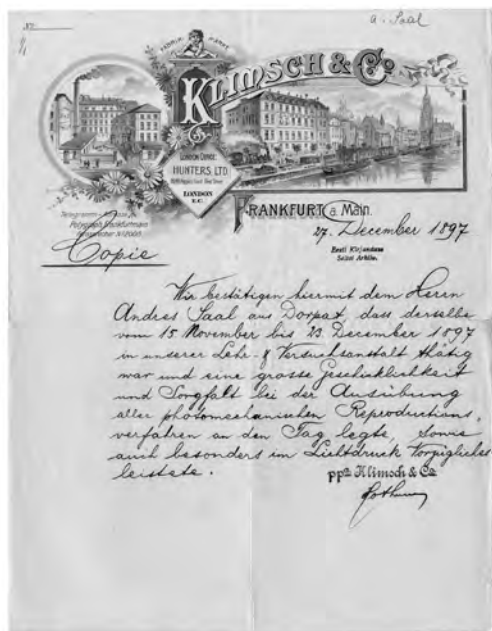 A. Saal
No
FABRIK MARKE
KLIMSCH & Co
LONDON OFFICE:
HUNTERS, LTD.
LONDON
E.C.
FRANKFURT a. Main.
27. December 1897
Eesti Kirjanduse
Seltsi Arhiiv.
Copie
Wir bestätigen hiermit dem Herrn
Andres Saal aus Dorpat, dass derselbe
vom 15. November bis 23. December 1897
in unserer Lehr- & Versuchsanstalt thätig
war und eine grosse Geschicklichkeit
und Sorgfalt bei der Ausübung
aller photomechanischen Reproductions-
verfahren an den Tag legte, sowie
auch besonders im Lichtdruck Vorzügliches
leistete.
ppa Klimsch & Co